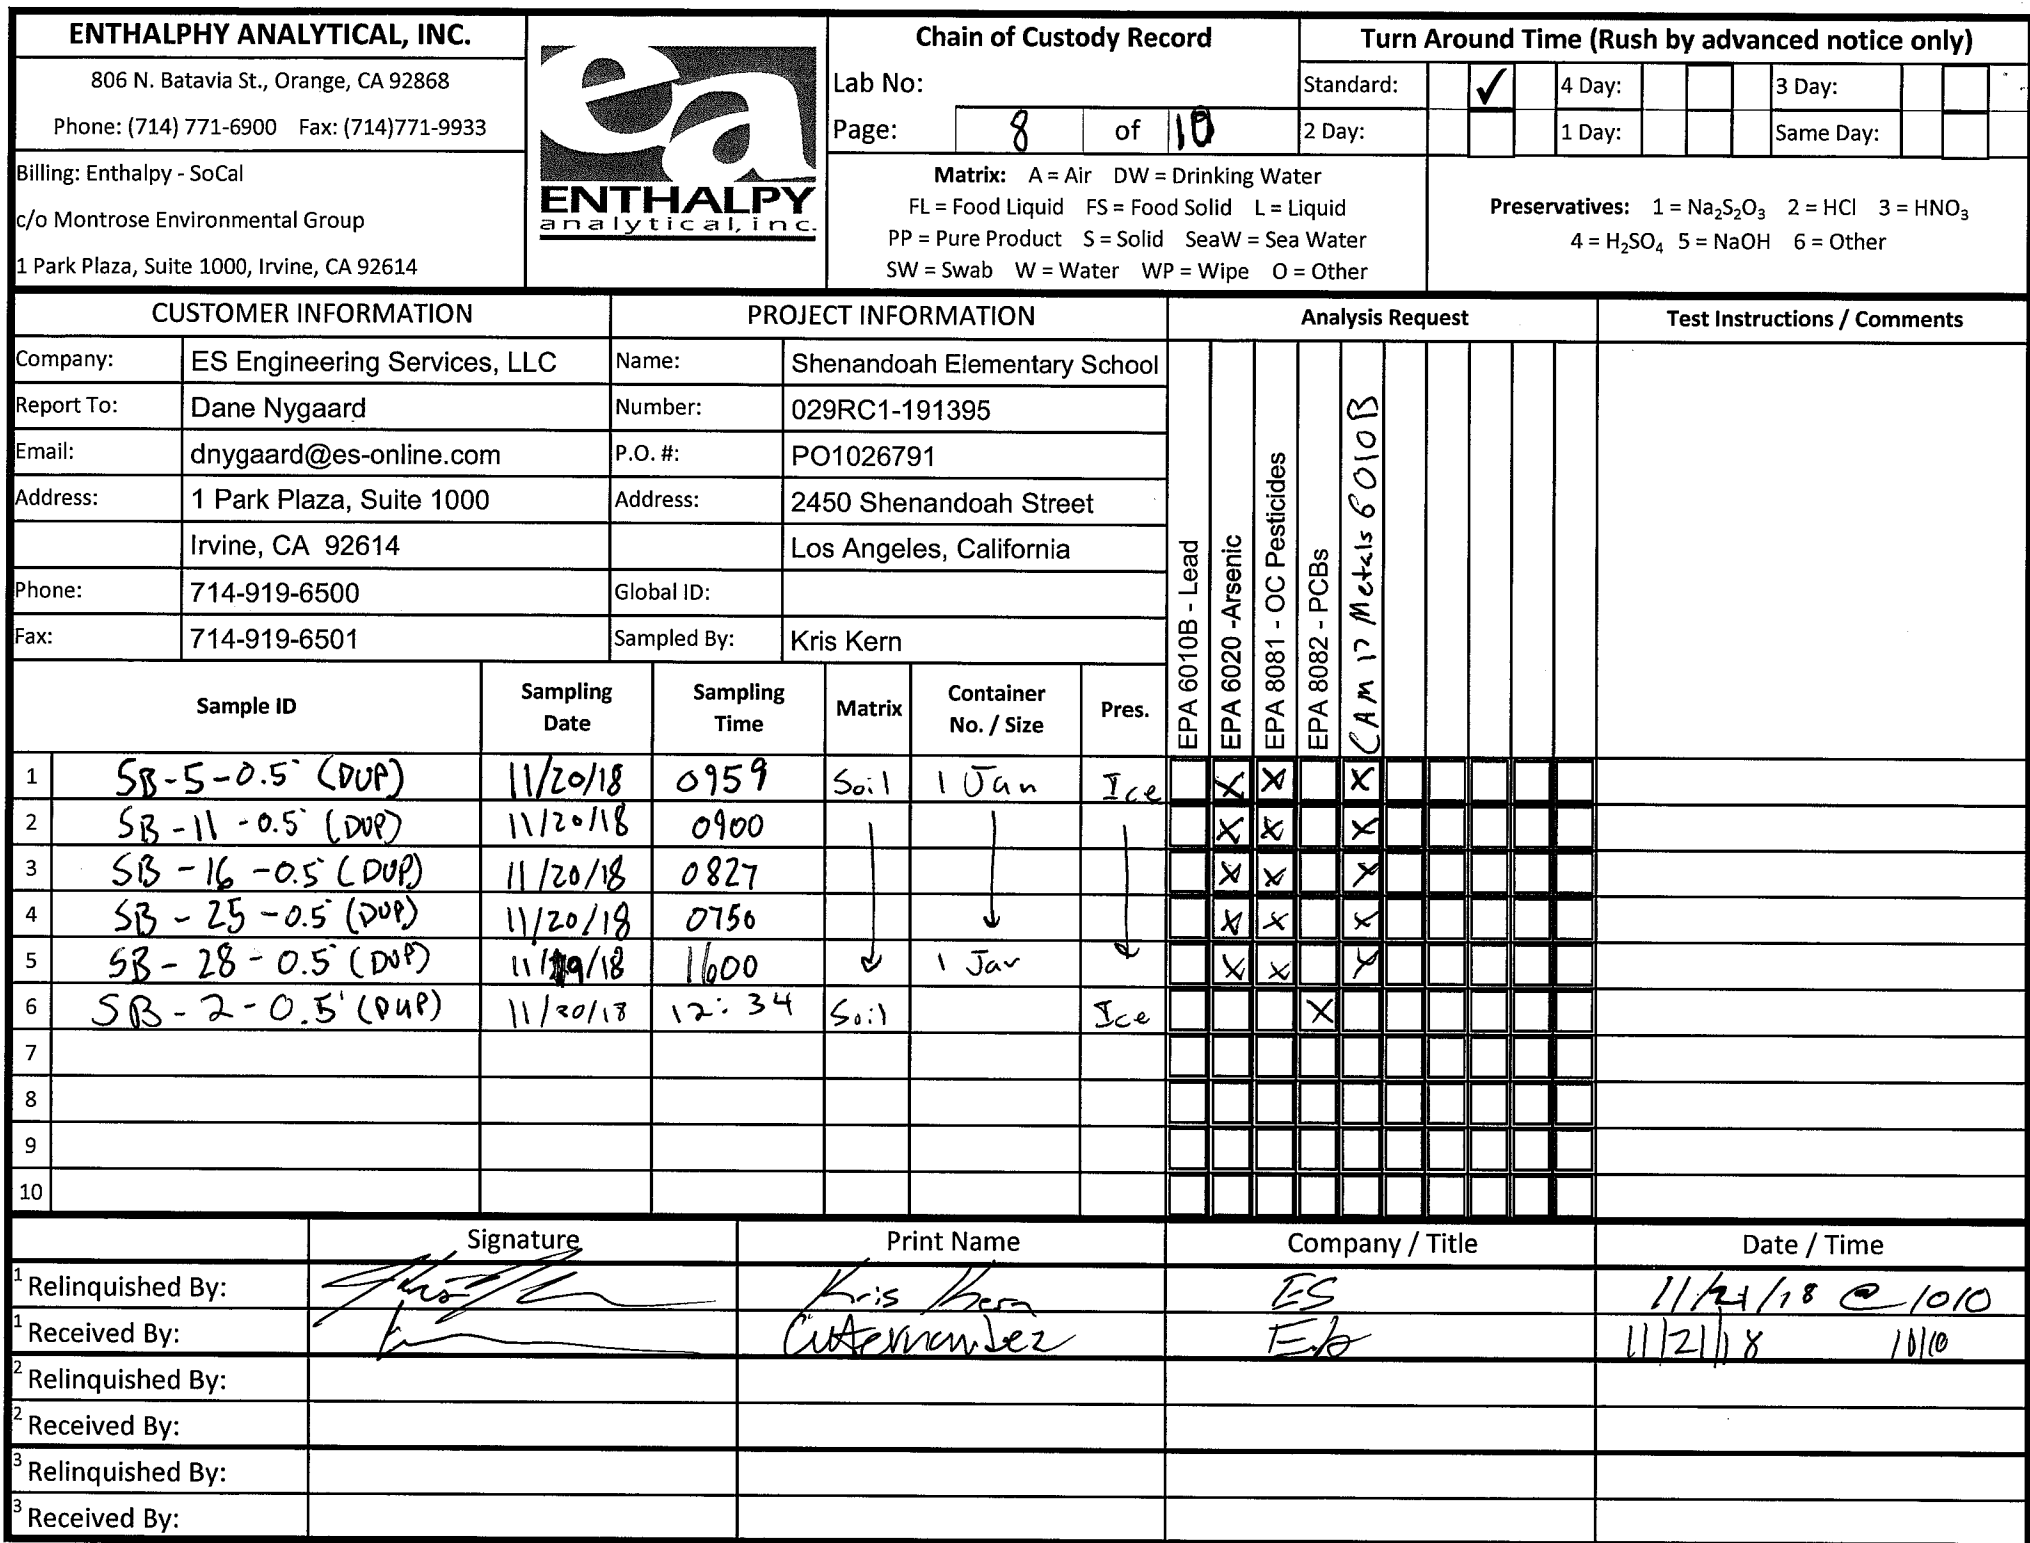 ENTHALPHY ANALYTICAL, INC.
806 N. Batavia St., Orange, CA 92868
Phone: (714) 771-6900 Fax: (714)771-9933
Billing: Enthalpy - SoCal
c/o Montrose Environmental Group
1 Park Plaza, Suite 1000, Irvine, CA 92614
ea
ENTHALPY
analytical, inc.
Chain of Custody Record
Lab No:
Page: 8 of 10
Matrix: A = Air DW = Drinking Water
FL = Food Liquid FS = Food Solid L = Liquid
PP = Pure Product S = Solid SeaW = Sea Water
SW = Swab W = Water WP = Wipe O = Other
Turn Around Time (Rush by advanced notice only)
Standard: ✓ 4 Day: 3 Day:
2 Day: 1 Day: Same Day:
Preservatives: 1 = Na₂S₂O₃ 2 = HCl 3 = HNO₃
4 = H₂SO₄ 5 = NaOH 6 = Other
CUSTOMER INFORMATION
Company: ES Engineering Services, LLC
Report To: Dane Nygaard
Email: dnygaard@es-online.com
Address: 1 Park Plaza, Suite 1000
Irvine, CA 92614
Phone: 714-919-6500
Fax: 714-919-6501
PROJECT INFORMATION
Name: Shenandoah Elementary School
Number: 029RC1-191395
P.O. #: PO1026791
Address: 2450 Shenandoah Street
Los Angeles, California
Global ID:
Sampled By: Kris Kern
Analysis Request
EPA 6010B - Lead
EPA 6020 -Arsenic
EPA 8081 - OC Pesticides
EPA 8082 - PCBs
CAM 17 Metals 6010B
Test Instructions / Comments
Sample ID Sampling Date Sampling Time Matrix Container No. / Size Pres.
1 SB-5-0.5' (DUP) 11/20/18 0959 Soil 1 Jar Ice X X X
2 SB-11-0.5' (DUP) 11/20/18 0900 X X X
3 SB-16-0.5' (DUP) 11/20/18 0827 X X X
4 SB-25-0.5' (DUP) 11/20/18 0750 X X X
5 SB-28-0.5' (DUP) 11/19/18 1600 1 Jar X X X
6 SB-2-0.5' (DUP) 11/20/18 12:34 Soil Ice X
7
8
9
10
Signature Print Name Company / Title Date / Time
1 Relinquished By: Kris Kern ES 11/21/18 @ 1010
1 Received By: 11/21/18 1010
2 Relinquished By:
2 Received By:
3 Relinquished By:
3 Received By: